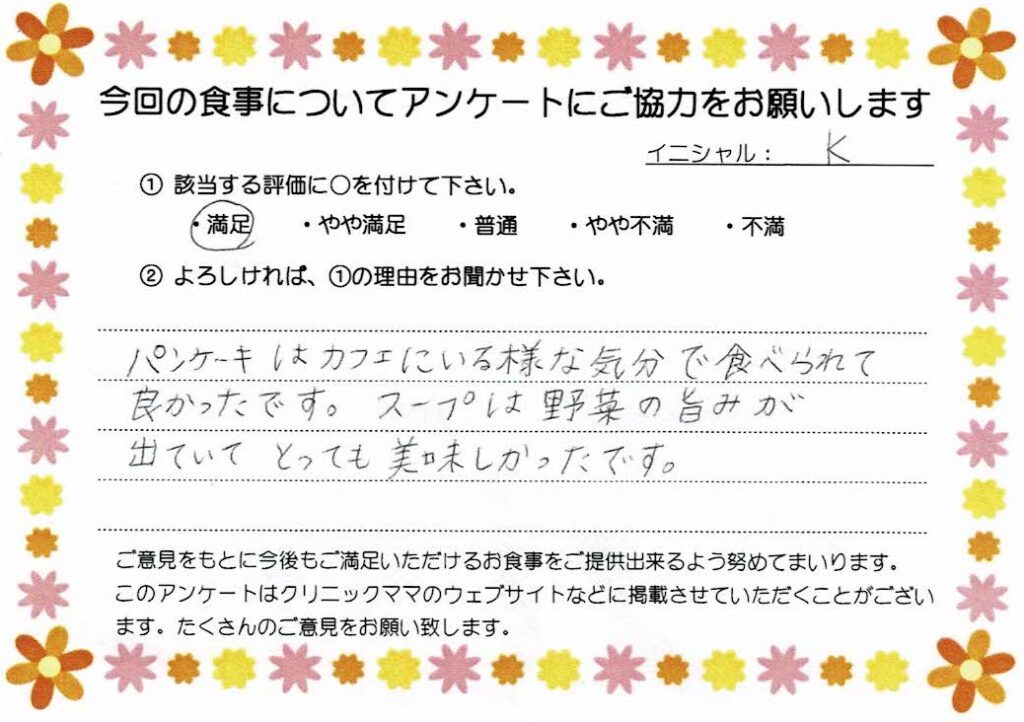 今回の食事についてアンケートにご協力をお願いします
イニシャル： K
① 該当する評価に○を付けて下さい。
・満足 ・やや満足 ・普通 ・やや不満 ・不満
② よろしければ、①の理由をお聞かせ下さい。
パンケーキはカフェにいる様な気分で食べられて
良かったです。スープは野菜の旨みが
出ていてとっても美味しかったです。
ご意見をもとに今後もご満足いただけるお食事をご提供出来るよう努めてまいります。
このアンケートはクリニックママのウェブサイトなどに掲載させていただくことがござい
ます。たくさんのご意見をお願い致します。